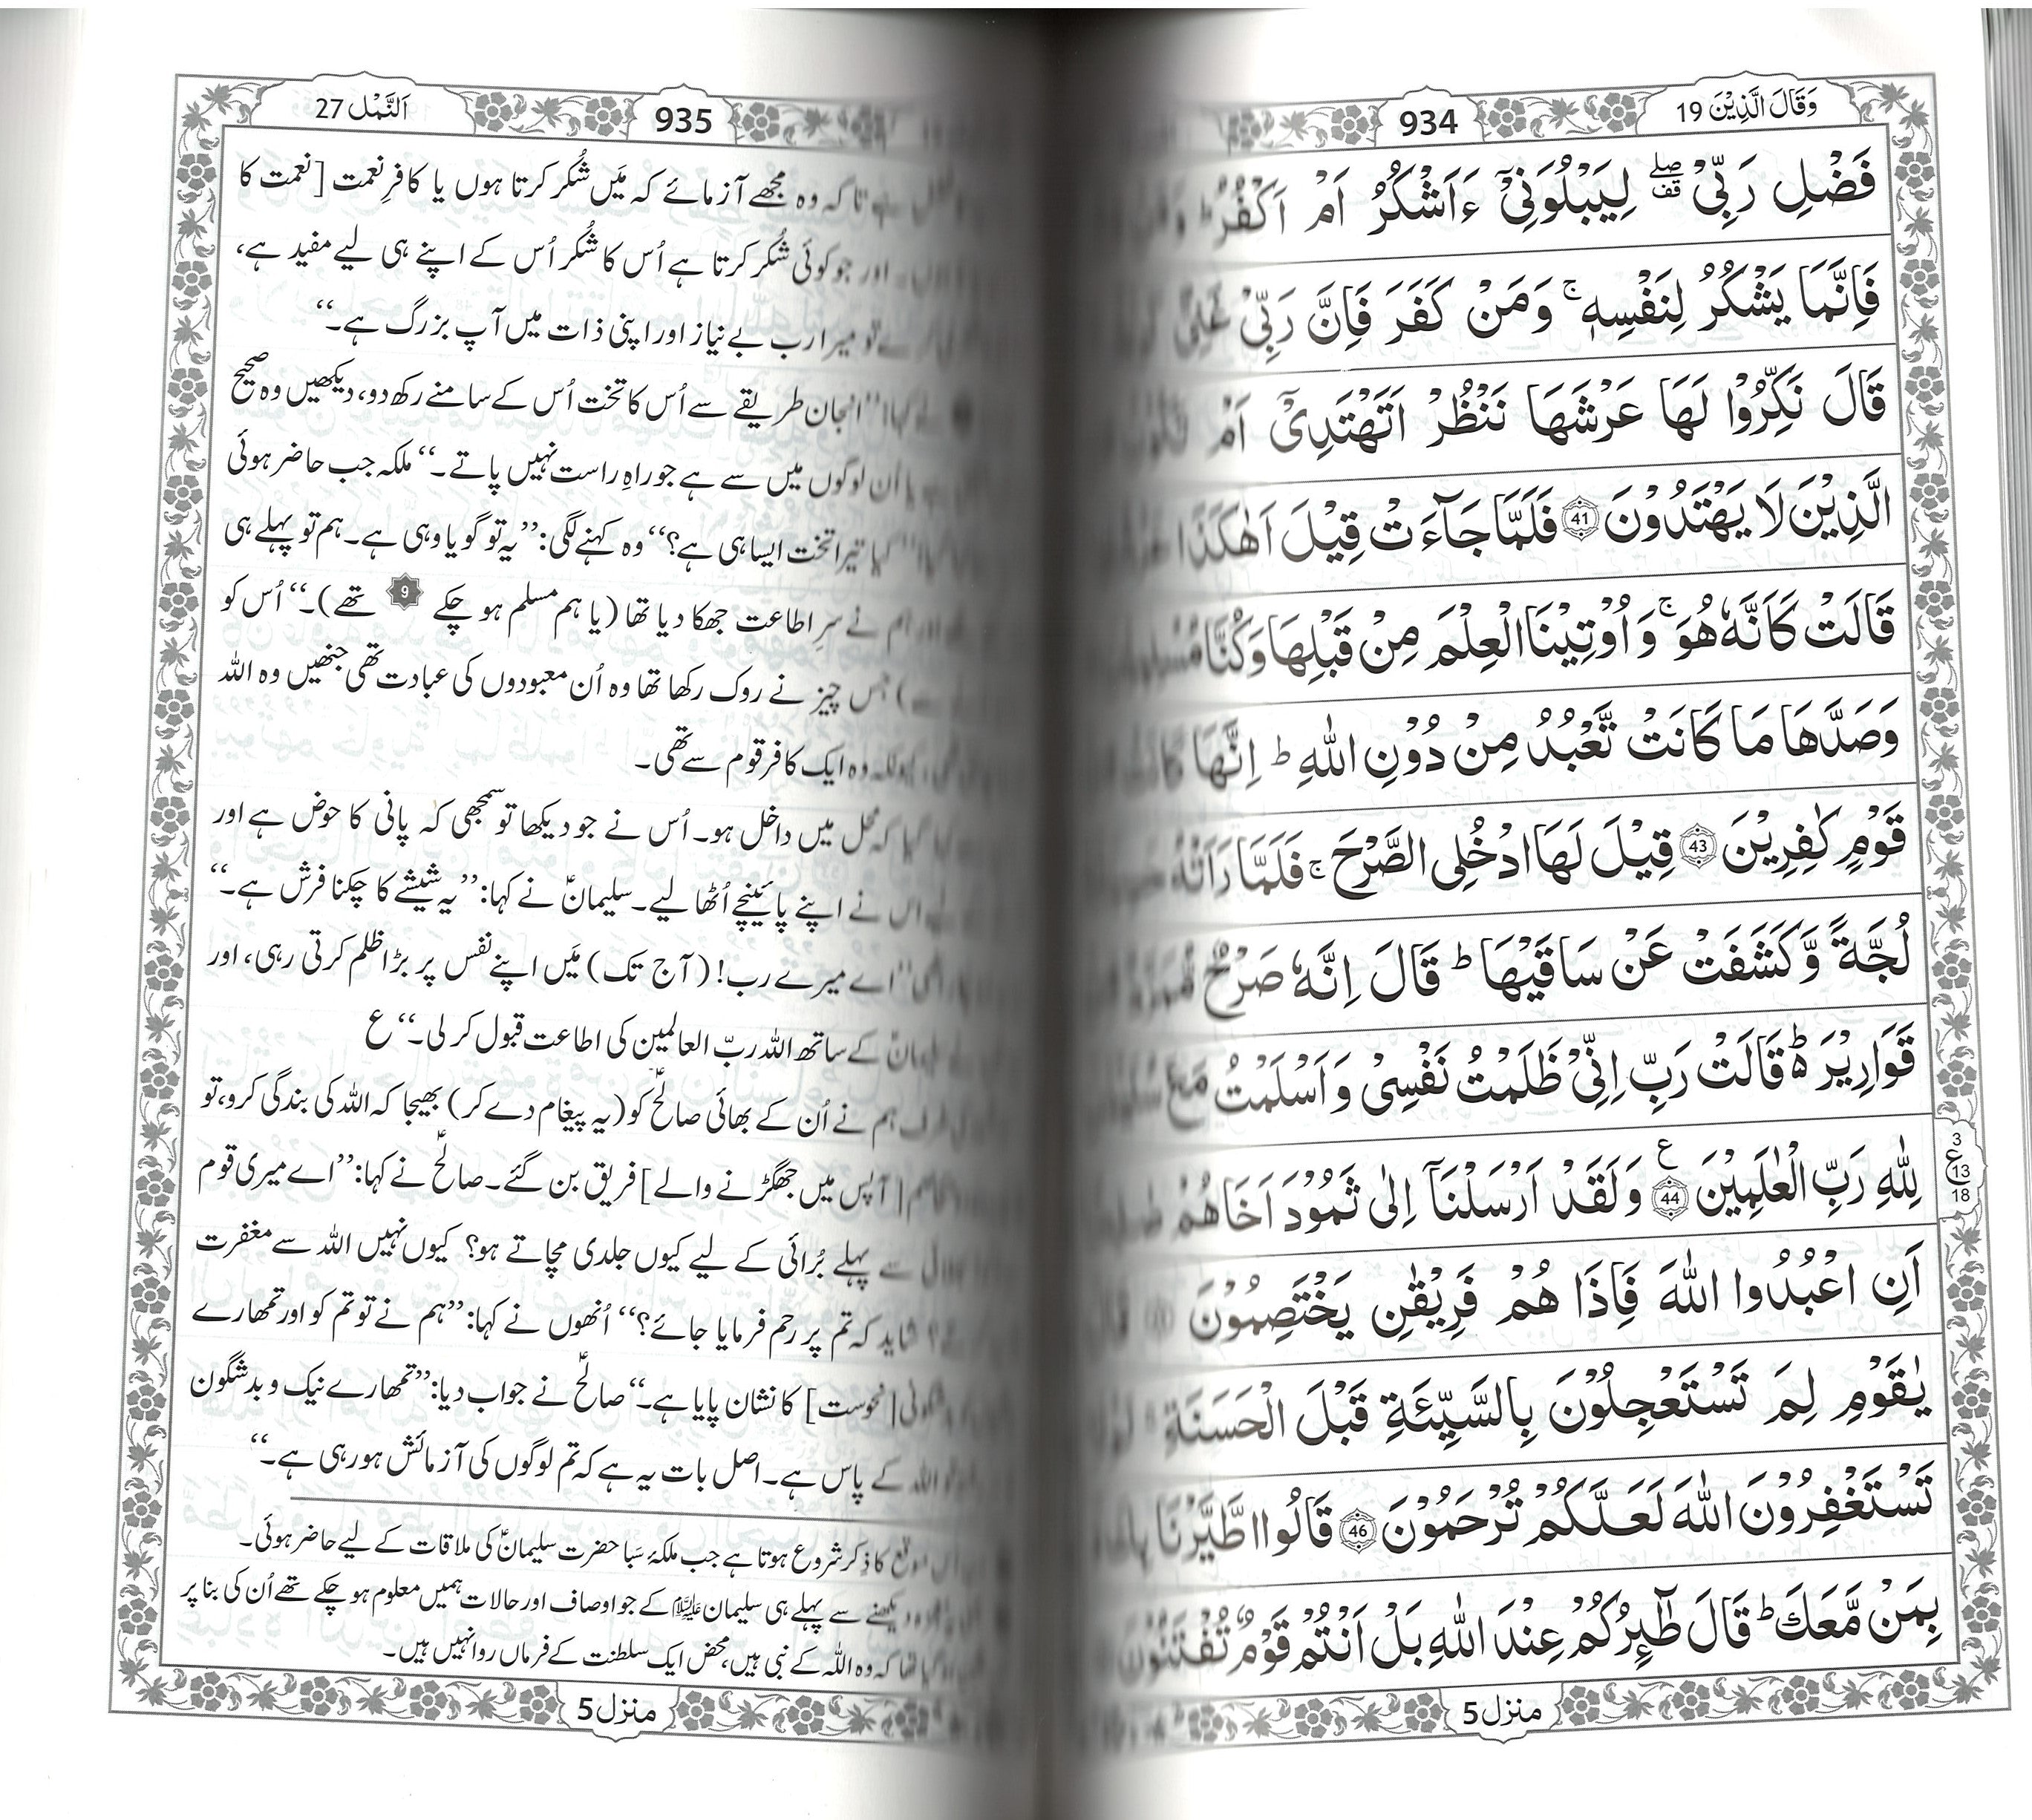 وَقَالَ الَّذِیْنَ 19
934
فَضْلِ رَبِّیْ ۖۗ لِیَبْلُوَنِیْۤ ءَاَشْكُرُ اَمْ اَكْفُرُ ؕ
فَاِنَّمَا یَشْكُرُ لِنَفْسِهٖ ۚ وَمَنْ كَفَرَ فَاِنَّ رَبِّیْ
قَالَ نَكِّرُوْا لَهَا عَرْشَهَا نَنْظُرْ اَتَهْتَدِیْۤ اَمْ
الَّذِیْنَ لَا یَهْتَدُوْنَ 41 فَلَمَّا جَآءَتْ قِیْلَ اَهٰكَذَا
قَالَتْ كَاَنَّهٗ هُوَ ۚ وَاُوْتِیْنَا الْعِلْمَ مِنْ قَبْلِهَا وَكُنَّا
وَصَدَّهَا مَا كَانَتْ تَّعْبُدُ مِنْ دُوْنِ اللّٰهِ ؕ اِنَّهَا
قَوْمٍ كٰفِرِیْنَ 43 قِیْلَ لَهَا ادْخُلِی الصَّرْحَ ۚ فَلَمَّا رَاَتْهُ
لُجَّةً وَّكَشَفَتْ عَنْ سَاقَیْهَا ؕ قَالَ اِنَّهٗ صَرْحٌ
قَوَارِیْرَ ۬ؕ قَالَتْ رَبِّ اِنِّیْ ظَلَمْتُ نَفْسِیْ وَاَسْلَمْتُ مَعَ
لِلّٰهِ رَبِّ الْعٰلَمِیْنَ 44 ع وَلَقَدْ اَرْسَلْنَاۤ اِلٰی ثَمُوْدَ اَخَاهُمْ
3 ع 13 18
اَنِ اعْبُدُوا اللّٰهَ فَاِذَا هُمْ فَرِیْقٰنِ یَخْتَصِمُوْنَ
یٰقَوْمِ لِمَ تَسْتَعْجِلُوْنَ بِالسَّیِّئَةِ قَبْلَ الْحَسَنَةِ
تَسْتَغْفِرُوْنَ اللّٰهَ لَعَلَّكُمْ تُرْحَمُوْنَ 46 قَالُوا اطَّیَّرْنَا
بِمَنْ مَّعَكَ ؕ قَالَ طٰٓىِٕرُكُمْ عِنْدَ اللّٰهِ بَلْ اَنْتُمْ قَوْمٌ تُفْتَنُوْنَ
منزل 5
935
اَلنَّمْل 27
تاکہ وہ مجھے آزمائے کہ مَیں شُکر کرتا ہوں یا کافرِ نعمت [نعمت کا
اور جو کوئی شُکر کرتا ہے اُس کا شُکر اُس کے اپنے ہی لیے مفید ہے،
تو میرا رب بے نیاز اور اپنی ذات میں آپ بزرگ ہے۔“
کہا: ”انجان طریقے سے اُس کا تخت اُس کے سامنے رکھ دو، دیکھیں وہ صحیح
یا اُن لوگوں میں سے ہے جو راہِ راست نہیں پاتے۔“ ملکہ جب حاضر ہوئی
کیا تیرا تخت ایسا ہی ہے؟“ وہ کہنے لگی: ”یہ تو گویا وہی ہے۔ ہم تو پہلے ہی
اور ہم نے سرِ اطاعت جھکا دیا تھا (یا ہم مسلم ہو چکے 9 تھے)۔“ اُس کو
جس چیز نے روک رکھا تھا وہ اُن معبودوں کی عبادت تھی جنھیں وہ اللہ
کیونکہ وہ ایک کافر قوم سے تھی۔
کہ محل میں داخل ہو۔ اُس نے جو دیکھا تو سمجھی کہ پانی کا حوض ہے اور
اس نے اپنے پائینچے اُٹھا لیے۔ سلیمانؑ نے کہا: ”یہ شیشے کا چکنا فرش ہے۔“
”اے میرے رب! (آج تک) مَیں اپنے نفس پر بڑا ظلم کرتی رہی، اور
کے ساتھ اللہ ربّ العالمین کی اطاعت قبول کر لی۔“ ع
ہم نے اُن کے بھائی صالحؑ کو (یہ پیغام دے کر) بھیجا کہ اللہ کی بندگی کرو، تو
[آپس میں جھگڑنے والے] فریق بن گئے۔ صالحؑ نے کہا: ”اے میری قوم
سے پہلے بُرائی کے لیے کیوں جلدی مچاتے ہو؟ کیوں نہیں اللہ سے مغفرت
شاید کہ تم پر رحم فرمایا جائے؟“ اُنھوں نے کہا: ”ہم نے تو تم کو اور تمھارے
[نحوست] کا نشان پایا ہے۔“ صالحؑ نے جواب دیا: ”تمھارے نیک و بد شگون
اللہ کے پاس ہے۔ اصل بات یہ ہے کہ تم لوگوں کی آزمائش ہو رہی ہے۔“
اس موقع کا ذکر شروع ہوتا ہے جب ملکۂ سَبا حضرت سلیمانؑ کی ملاقات کے لیے حاضر ہوئی۔
دیکھنے سے پہلے ہی سلیمان علیہ السلام کے جو اوصاف اور حالات ہمیں معلوم ہو چکے تھے اُن کی بنا پر
کہ وہ اللہ کے نبی ہیں، محض ایک سلطنت کے فرماں روا نہیں ہیں۔
منزل 5